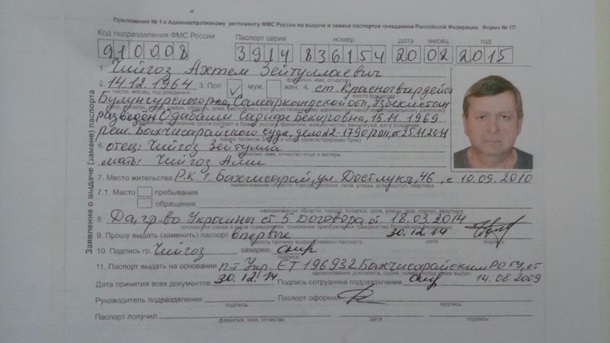 Приложение № 1 к Административному регламенту ФМС России по выдаче и замене паспортов гражданина Российской Федерации. Форма № 1П
Код подразделения ФМС России Паспорт серия номер дата месяц год
910008 3914 836154 20 02 2015
1. Чийгоз Ахтем Зейтуллаевич
фамилия, имя, отчество
2. 14.12.1964 3. Пол муж. жен. 4. ст. Красногвардейск
число, месяц, год рождения
Булунгурского р-на, Самаркандской обл, Узбекистан
5. разведен Одабаши Бекировна, 15.11.1969
реш. Бахчисарайского суда, дело 25.11.2011
6. отец: Чийгоз Зейтулла
мать: Чийгоз Алие
7. Место жительства Р.К. г. Бахчисарай, ул. Достлука, 46, с 10.09.2010
7.1. Место пребывания
обращения
8. Да, гр-во Украины ст 5 Договора от 18.03.2014
9. Прошу выдать (заменить) паспорт впервые 30.12.14
причина выдачи (замены) паспорта дата подпись
10. Подпись гр. Чийгоз заверяю
11. Паспорт выдать на основании п-т Укр. ЕТ 196932 Бахчисарайским РО ГУ от
Дата принятия всех документов 30.12.14 Подпись сотрудника подразделения 14.08.2009
Руководитель подразделения Паспорт оформил
подпись подпись
Паспорт получил
фамилия, имя, отчество подпись дата
Заявление о выдаче (замене) паспорта